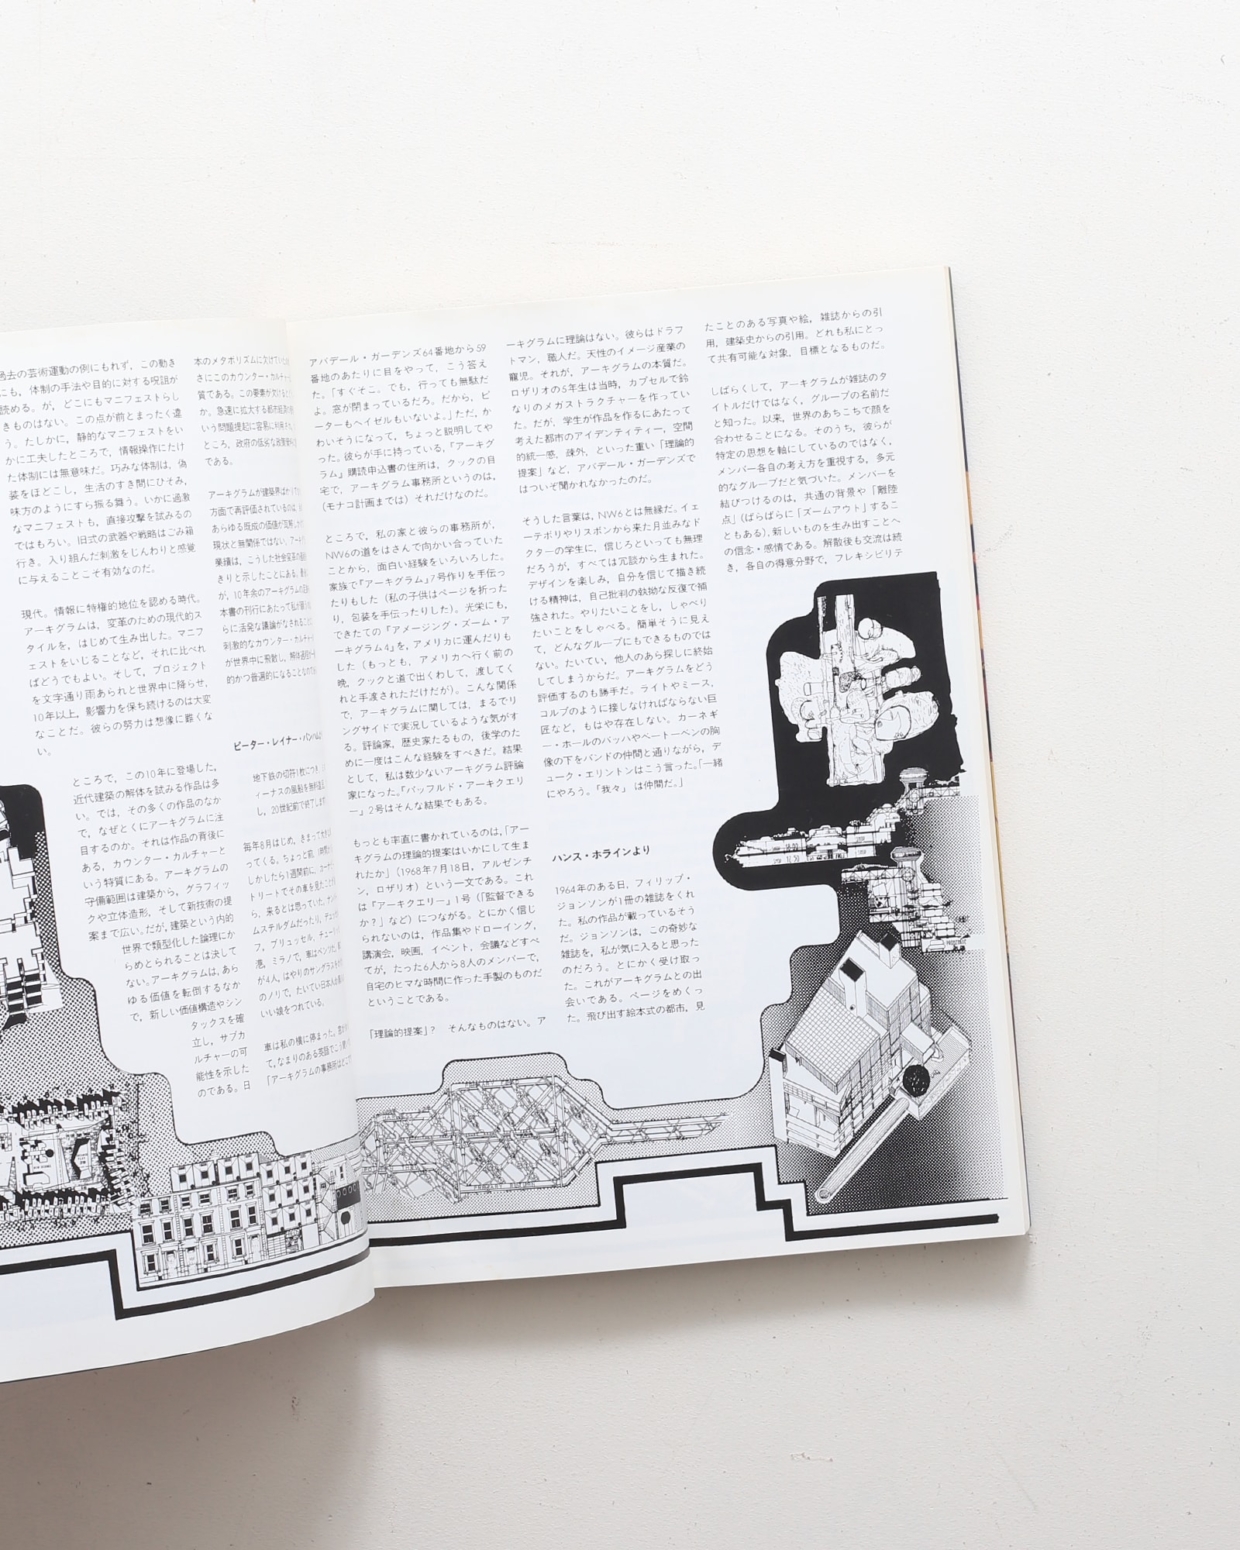 過去の芸術運動の例にもれず，この動き
にも，体制の手法や目的に対する呪詛が
読める。が，どこにもマニフェストらし
きものはない。この点が前とまったく違
う。たしかに，静的なマニフェストをい
かに工夫したところで，情報操作にたけ
た体制には無意味だ。巧みな体制は，偽
装をほどこし，生活のすき間にひそみ，
味方のようにすら振る舞う。いかに過激
なマニフェストも，直接攻撃を試みるの
ではもろい。旧式の武器や戦略はごみ箱
行き。入り組んだ刺激をじんわりと感覚
に与えることこそ有効なのだ。
現代，情報に特権的地位を認める時代。
アーキグラムは，変革のための現代的ス
タイルを，はじめて生み出した。マニフ
ェストをいじることなど，それに比べれ
ばどうでもよい。そして，プロジェクト
を文字通り雨あられと世界中に降らせ，
10年以上，影響力を保ち続けるのは大変
なことだ。彼らの努力は想像に難くな
い。
ところで，この10年に登場した，
近代建築の解体を試みる作品は多
い。では，その多くの作品のなか
で，なぜとくにアーキグラムに注
目するのか。それは作品の背後に
ある，カウンター・カルチャーと
いう特質にある。アーキグラムの
守備範囲は建築から，グラフィッ
クや立体造形，そして新技術の提
案まで広い。だが，建築という内的
世界で類型化した論理にか
らめとられることは決して
ない。アーキグラムは，あら
ゆる価値を転倒するなか
で，新しい価値構造やシン
タックスを確
立し，サブカ
ルチャーの可
能性を示した
のである。日
本のメタボリズムに欠けていた
さにこのカウンター・カルチャー
質である。この要素が欠け
か，急速に拡大する都市
いう問題提起に容易に
ところ，政府の低劣な
である。
アーキグラムが建築界
方面で再評価されているのは
あらゆる既成の価値が瓦解
現状と無関係ではない。アーキ
業績は，こうした社会変革の
きりと示したことにある。
が，10年余のアーキグラムの
本書の刊行にあたって私が
らに活発な議論がなされること
刺激的なカウンター・カルチャー
が世界中に飛散し，
的かつ普遍的になること
ピーター・レイナー・バンハム
地下鉄の切符1枚につき
ィーナスの風船を無料
し，20世紀前で終了します
毎年8月はじめ，きまって
ってくる。ちょっと前
しかしたら1週間前に
トリートでその車を見た
ら，来るとは思っていた。
ムステルダムだったり，チュ
フ，ブリュッセル，チュー
港，ミラノで，車はベンツだ
が4人，はやりのサングラス
のノリで，たいてい日本人
いい娘をつれている。
車は私の横に停まった。
て，なまりのある英語でこう
「アーキグラムの事務所はどこ
アバデール・ガーデンズ64番地から59
番地のあたりに目をやって，こう答え
た。「すぐそこ。でも，行っても無駄だ
よ。窓が閉まっているだろ。だから，ピ
ーターもヘイゼルもいないよ。」ただ，か
わいそうになって，ちょっと説明してや
った。彼らが手に持っている，『アーキグ
ラム』購読申込書の住所は，クックの自
宅で，アーキグラム事務所というのは，
(モナコ計画までは）それだけなのだ。
ところで，私の家と彼らの事務所が，
NW6の道をはさんで向かい合っていた
ことから，面白い経験をいろいろした。
家族で『アーキグラム』7号作りを手伝っ
たりもした（私の子供はページを折った
り，包装を手伝ったりした）。光栄にも，
できたての『アメージング・ズーム・ア
ーキグラム4』を，アメリカに運んだりも
した（もっとも，アメリカへ行く前の
晩，クックと道で出くわして，渡してく
れと手渡されただけだが）。こんな関係
で，アーキグラムに関しては，まるでリ
ングサイドで実況しているような気がす
る。評論家，歴史家たるもの，後学のた
めに一度はこんな経験をすべきだ。結果
として，私は数少ないアーキグラム評論
家になった。『バッフルド・アーキクエリ
ー』2号はそんな結果でもある。
もっとも率直に書かれているのは，「アー
キグラムの理論的提案はいかにして生ま
れたか」（1968年7月18日，アルゼンチ
ン，ロザリオ）という一文である。これ
は『アークエリー』1号（「監督できる
か？」など）につながる。とにかく信じ
られないのは，作品集やドローイング，
講演会，映画，イベント，会議などすべ
てが，たった6人から8人のメンバーで，
自宅のヒマな時間に作った手製のものだ
ということである。
「理論的提案」？　そんなものはない。ア
ーキグラムに理論はない。彼らはドラフ
トマン，職人だ。天性のイメージ産業の
寵児。それが，アーキグラムの本質だ。
ロザリオの5年生は当時，カプセルで鈴
なりのメガストラクチャーを作ってい
た。だが，学生が作品を作るにあたって
考えた都市のアイデンティティー，空間
的統一感，疎外，といった重い「理論的
提案」など，アバデール・ガーデンズで
はついぞ聞かれなかったのだ。
そうした言葉は，NW6とは無縁だ。イェ
ーテボリやリスボンから来た月並みなド
クターの学生に，信じろといっても無理
だろうが，すべては冗談から生まれた。
デザインを楽しみ，自分を信じて描き続
ける精神は，自己批判の執拗な反復で補
強された。やりたいことをし，しゃべり
たいことをしゃべる。簡単そうに見え
て，どんなグループにもできるものでは
ない。たいてい，他人のあら探しに終始
してしまうからだ。アーキグラムをどう
評価するのも勝手だ。ライトやミース，
コルブのように接しなければならない巨
匠など，もはや存在しない。カーネギ
ー・ホールのバッハやベートーベンの胸
像の下をバンドの仲間と通りながら，デ
ューク・エリントンはこう言った。「一緒
にやろう。「我々」は仲間だ。」
ハンス・ホラインより
1964年のある日，フィリップ・
ジョンソンが1冊の雑誌をくれ
た。私の作品が載っているそう
だ。ジョンソンは，この奇妙な
雑誌を，私が気に入ると思った
のだろう。とにかく受け取っ
た。これがアーキグラムとの出
会いである。ページをめくっ
た。飛び出す絵本式の都市，見
たことのある写真や絵，雑誌からの引
用，建築史からの引用。どれも私にとっ
て共有可能な対象，目標となるものだ。
しばらくして，アーキグラムが雑誌のタ
イトルだけではなく，グループの名前だ
と知った。以来，世界のあちこちで顔を
合わせることになる。そのうち，彼らが
特定の思想を軸にしているのではなく，
メンバー各自の考え方を重視する，多元
的なグループだと気づいた。メンバーを
結びつけるのは，共通の背景や「離陸
点」（ばらばらに「ズームアウト」するこ
ともある），新しいものを生み出すことへ
の信念・感情である。解散後も交流は続
き，各自の得意分野で，フレキシビリテ